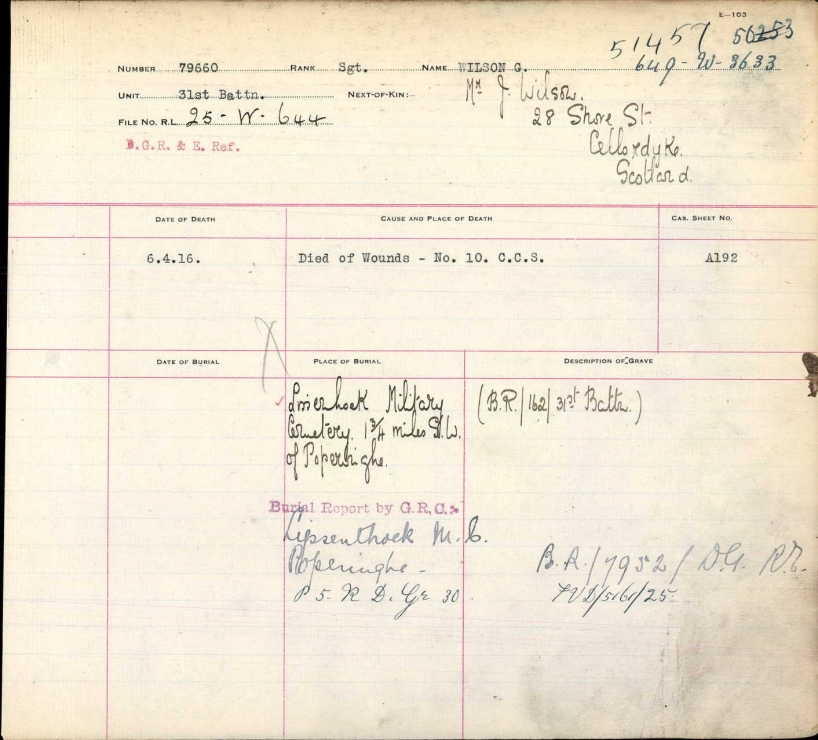 E—103
51457 56253
649-W-3633
NUMBER 79660 RANK Sgt. NAME WILSON G.
UNIT 31st Battn. NEXT-OF-KIN:- Mr J. Wilson.
28 Shore St.
FILE NO. R.L. 25-W-644
Cellordyke.
D.G.R. & E. Ref.
Scotland.
DATE OF DEATH CAUSE AND PLACE OF DEATH CAS. SHEET NO.
6.4.16. Died of Wounds - No. 10. C.C.S. A192
DATE OF BURIAL PLACE OF BURIAL DESCRIPTION OF GRAVE
Military (B.R./162/31st Battn.)
Cemetery. 1¾ miles S.W.
of Poperinghe.
Burial Report by G.R.C:-
Lijssenthoek M. C.
Poperinghe - B.A./7952/D.G. R.E.
P 5. R D. Gr 30.